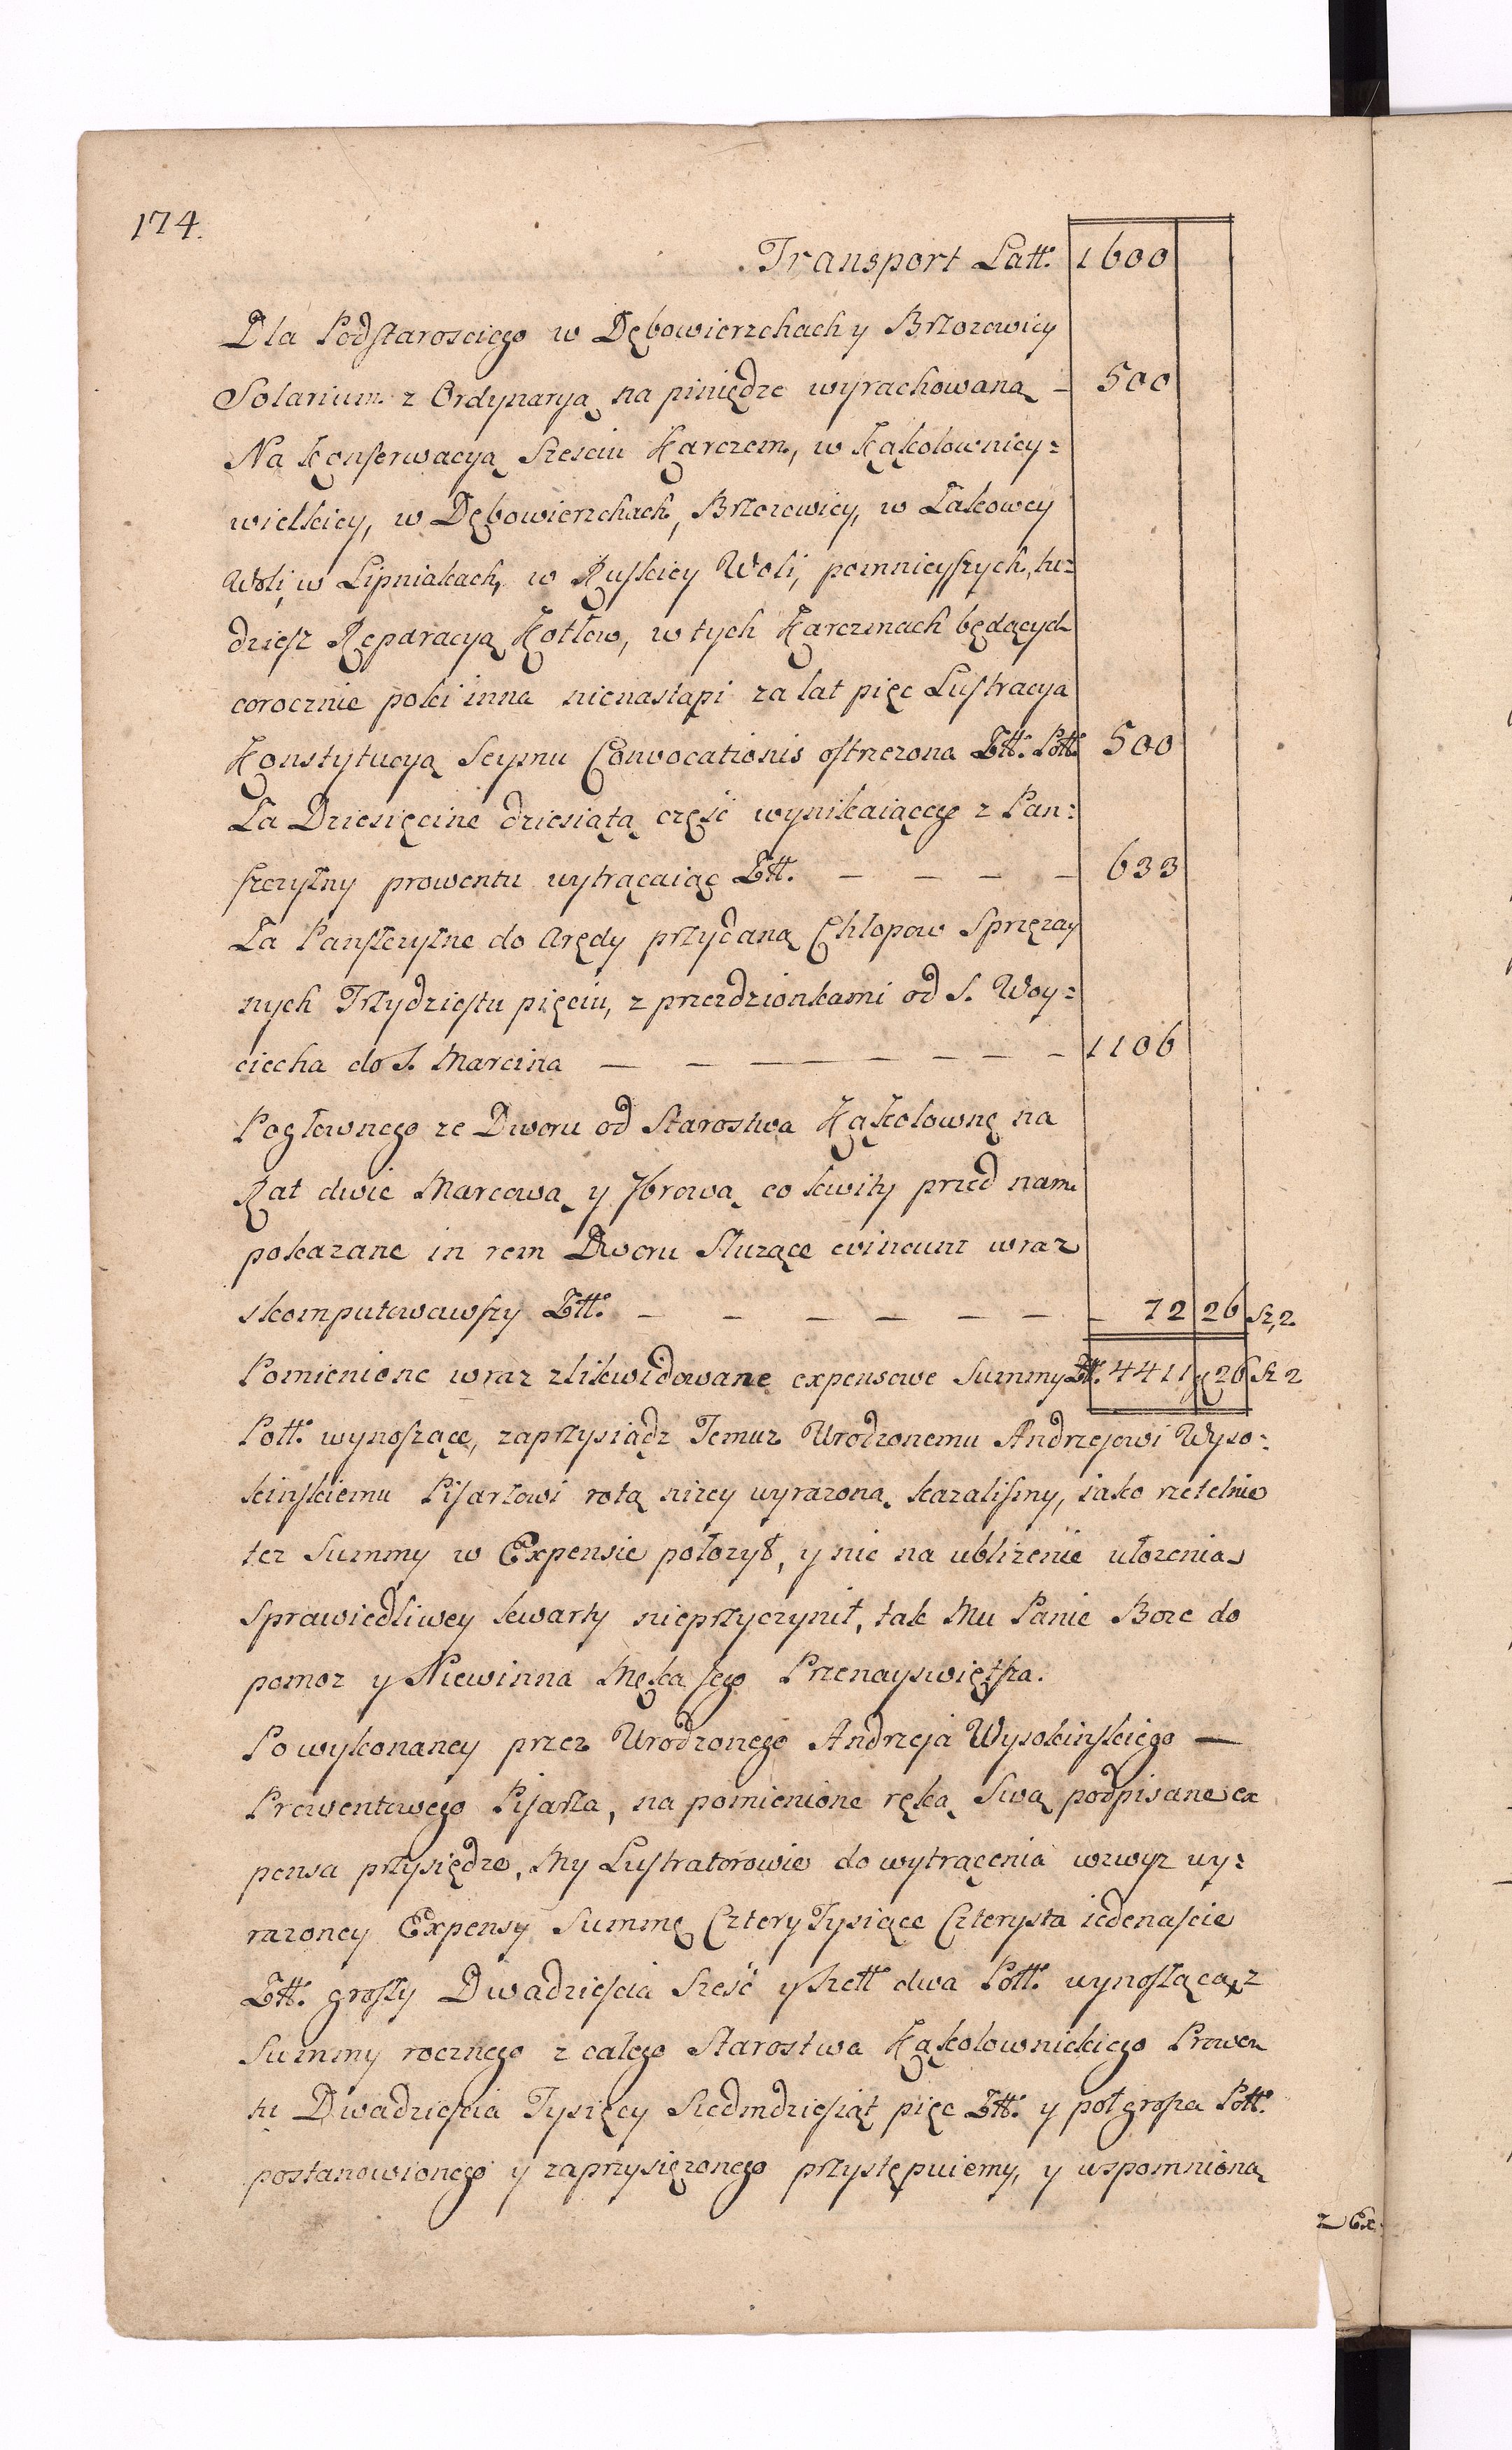 174.
Transport Latt. 1600
Dla Podstarosciego w Dębowierzchach y Brzozowicy
Solarium z Ordynaryą na piniędze wyrachowaną – 500
Na Konserwacyą Szesciu Karczem, w Kąkolownicy=
wielkiey, w Dębowierzchach, Brzozowicy, w Zakowey
Woli, w Lipniakach, w Ruskiey Woli, pomnieyszych, tu=
dziesz Reparacyą Kotłow, w tych Karczmach będących
corocznie poki inna nienastąpi za lat pięc Lustracya
Konstytucyą Seymu Convocationis ostrzezona Ztt. Pott. 500
Za Dziesięcine dziesiątą część wynikaiącego z Pan=
szczyzny prowentu wytrącaiąc Ztt. – – – – 633
Za Panszczyzne do Arędy przydaną Chłopow Sprzęzay
nych Trzydziestu pięciu, z przezdzionkami od S. Woy=
ciecha do S. Marcina – – – – – – – – 1106
Pogłownego ze Dworu od Starostwa Kąkolownę na
Rat dwie Marcową y 7brową co kwity przed nami
pokazane in rem Dworu Służące evincunt wraz
skomputowawszy Ztt. – – – – – – – 72 26 Sz, 2
Pomienione wraz zlikwidowane expensowe Summy Ztt. 4411 g 26 Sz 2
Pott. wynoszące, zaprzysiądz Temuz Urodzonemu Andrzejowi Wyso=
kinskiemu Pisarzowi rotą nizey wyrazoną kazalismy, iako rzetelnie
tez Summy w Expensie połozył, y nic na ublizenie ułozenia
Sprawiedliwey kwarty nieprzyczynił, tak Mu Panie Boze do
pomoz y Niewinna Męka Jego Przenayswiętsza.
Po wykonaney przez Urodzonego Andrzeja Wysokinskiego —
Prowentowego Pisarza, na pomienione ręką Swą podpisane ex
pensa przysiędze, My Lustratorowie do wytrącenia wzwyz wy=
razoney Expensy Summę Cztery Tysiące Czterysta iedenascie
Ztt. groszy Dwadziescia Szesć y Szell dwa Pott. wynoszącą, z
Summy rocznego z całego Starostwa Kąkolownickiego Prowen
tu Dwadziescia Tysięcy Siedmdziesiąt pięc Ztt. y poł grosza Pott.
postanowionego y zaprzysięzonego przystępuiemy, y wspomnioną
z Ex: